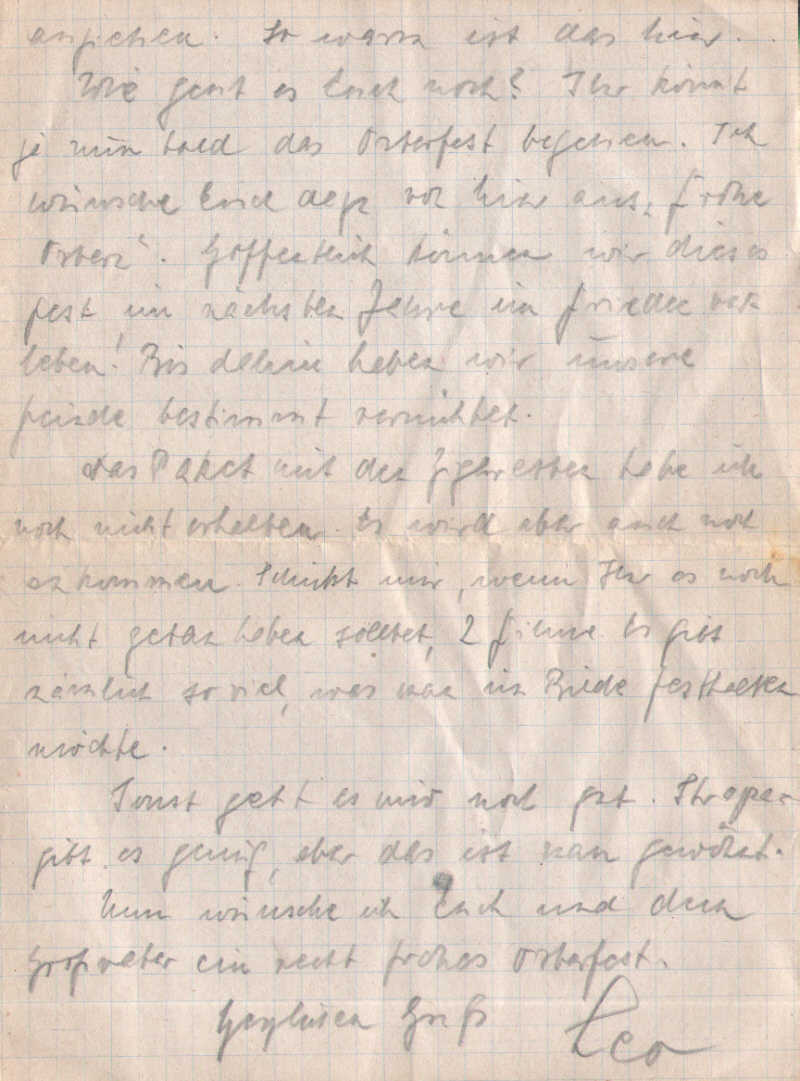 anziehen. So warm ist das hier.
Wie geht es Euch noch? Ihr könnt
ja nun bald das Osterfest begehen. Ich
wünsche Euch von hier aus „Frohe
Ostern“. Hoffentlich können wir dieses
Fest im nächsten Jahre im Frieden ver
leben! Bis dahin haben wir unsere
Feinde bestimmt vernichtet.
Das Paket mit den Zigaretten habe ich
noch nicht erhalten. Es wird aber auch noch
ankommen. Schickt mir, wenn Ihr es noch
nicht getan haben solltet, 2 Filme. Es gibt
nämlich so viel, was man im Bilde festhalten
möchte.
Sonst geht es mir noch gut. Strapa-
gibt es genug, aber das ist man gewöhnt.
Nun wünsche ich Euch und dem
Großvater ein recht frohes Osterfest.
Herzlichen Gruß Leo